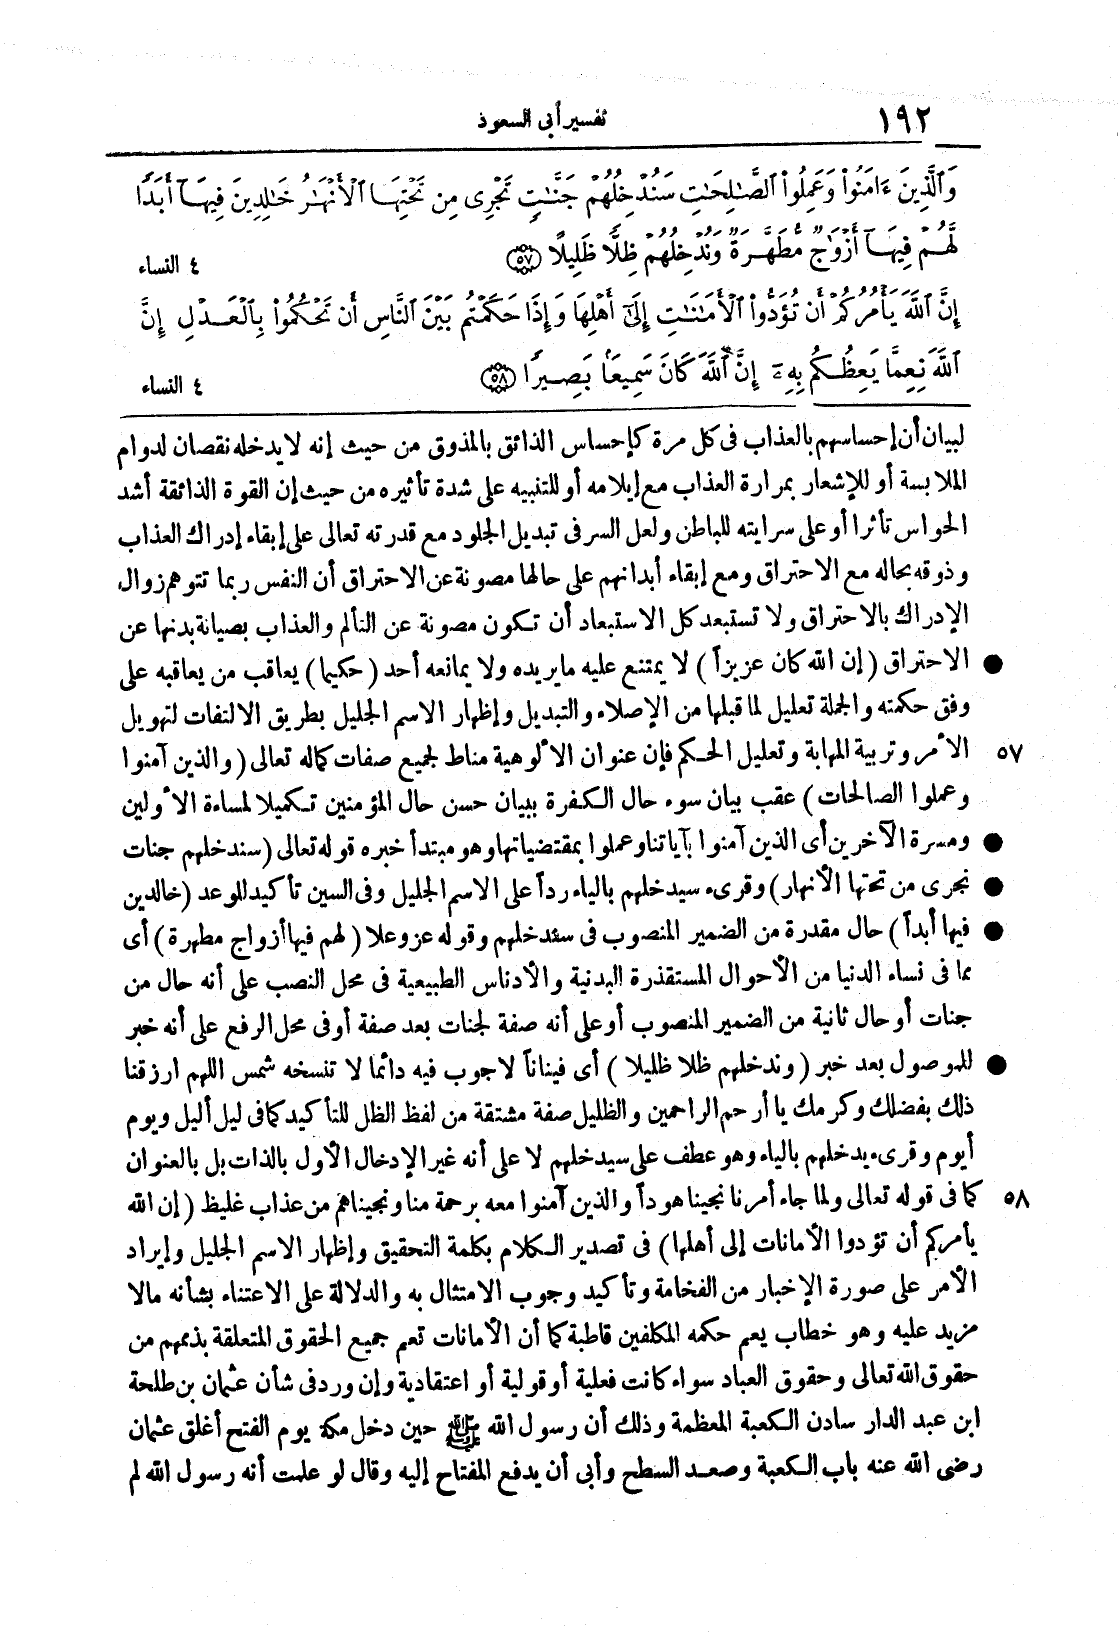 ١٩٢
تفسير أبى السعود
وَٱلَّذِينَ ءَامَنُوا۟ وَعَمِلُوا۟ ٱلصَّـٰلِحَـٰتِ سَنُدْخِلُهُمْ جَنَّـٰتٍ تَجْرِى مِن تَحْتِهَا ٱلْأَنْهَـٰرُ خَـٰلِدِينَ فِيهَآ أَبَدًا
لَّهُمْ فِيهَآ أَزْوَٰجٌ مُّطَهَّرَةٌ وَنُدْخِلُهُمْ ظِلًّا ظَلِيلًا ﴿٥٧﴾
٤ النساء
إِنَّ ٱللَّهَ يَأْمُرُكُمْ أَن تُؤَدُّوا۟ ٱلْأَمَـٰنَـٰتِ إِلَىٰٓ أَهْلِهَا وَإِذَا حَكَمْتُم بَيْنَ ٱلنَّاسِ أَن تَحْكُمُوا۟ بِٱلْعَدْلِ إِنَّ
ٱللَّهَ نِعِمَّا يَعِظُكُم بِهِۦٓ إِنَّ ٱللَّهَ كَانَ سَمِيعًۢا بَصِيرًا ﴿٥٨﴾
٤ النساء
لبيان أن إحساسهم بالعذاب فى كل مرة كإحساس الذائق بالمذوق من حيث إنه لا يدخله نقصان لدوام
الملابسة أو للإشعار بمرارة العذاب مع إيلامه أو للتنبيه على شدة تأثيره من حيث إن القوة الذائقة أشد
الحواس تأثرا أو على سرايته للباطن ولعل السر فى تبديل الجلود مع قدرته تعالى على إبقاء إدراك العذاب
وذوقه بحاله مع الاحتراق ومع إبقاء أبدانهم على حالها مصونة عن الاحتراق أن النفس ربما تتوهم زوال
الإدراك بالاحتراق ولا تستبعد كل الاستبعاد أن تكون مصونة عن التألم والعذاب بصيانة بدنها عن
● الاحتراق ( إن الله كان عزيزاً ) لا يمتنع عليه ما يريده ولا يمانعه أحد ( حكيما ) يعاقب من يعاقبه على
وفق حكمته والجملة تعليل لما قبلها من الإصلاء والتبديل وإظهار الاسم الجليل بطريق الالتفات لتهويل
٥٧ الأمر وتربية المهابة وتعليل الحكم فإن عنوان الألوهية مناط لجميع صفات كماله تعالى ( والذين آمنوا
وعملوا الصالحات ) عقب بيان سوء حال الكفرة ببيان حسن حال المؤمنين تكميلا لمساءة الأولين
● ومسرة الآخرين أى الذين آمنوا بآياتنا وعملوا بمقتضياتها وهو مبتدأ خبره قوله تعالى ( سندخلهم جنات
● تجرى من تحتها الأنهار ) وقرىء سيدخلهم بالياء رداً على الاسم الجليل وفى السين تأكيد للوعد ( خالدين
● فيها أبداً ) حال مقدرة من الضمير المنصوب فى سندخلهم وقوله عز وعلا ( لهم فيها أزواج مطهرة ) أى
مما فى نساء الدنيا من الأحوال المستقذرة البدنية والأدناس الطبيعية فى محل النصب على أنه حال من
جنات أو حال ثانية من الضمير المنصوب أو على أنه صفة لجنات بعد صفة أو فى محل الرفع على أنه خبر
● للموصول بعد خبر ( وندخلهم ظلا ظليلا ) أى فيناناً لا جوب فيه دائما لا تنسخه شمس اللهم ارزقنا
ذلك بفضلك وكرمك يا أرحم الراحمين والظليل صفة مشتقة من لفظ الظل للتأكيد كما فى ليل أليل ويوم
أيوم وقرىء يدخلهم بالياء وهو عطف على سيدخلهم لا على أنه غير الإدخال الأول بالذات بل بالعنوان
٥٨ كما فى قوله تعالى ولما جاء أمرنا نجينا هوداً والذين آمنوا معه برحمة منا ونجيناهم من عذاب غليظ ( إن الله
يأمركم أن تؤدوا الأمانات إلى أهلها ) فى تصدير الكلام بكلمة التحقيق وإظهار الاسم الجليل وإيراد
الأمر على صورة الإخبار من الفخامة وتأكيد وجوب الامتثال به والدلالة على الاعتناء بشأنه مالا
مزيد عليه وهو خطاب يعم حكمه المكلفين قاطبة كما أن الأمانات تعم جميع الحقوق المتعلقة بذممهم من
حقوق الله تعالى وحقوق العباد سواء كانت فعلية أو قولية أو اعتقادية وإن ورد فى شأن عثمان بن طلحة
ابن عبد الدار سادن الكعبة المعظمة وذلك أن رسول الله ﷺ حين دخل مكة يوم الفتح أغلق عثمان
رضى الله عنه باب الكعبة وصعد السطح وأبى أن يدفع المفتاح إليه وقال لو علمت أنه رسول الله لم